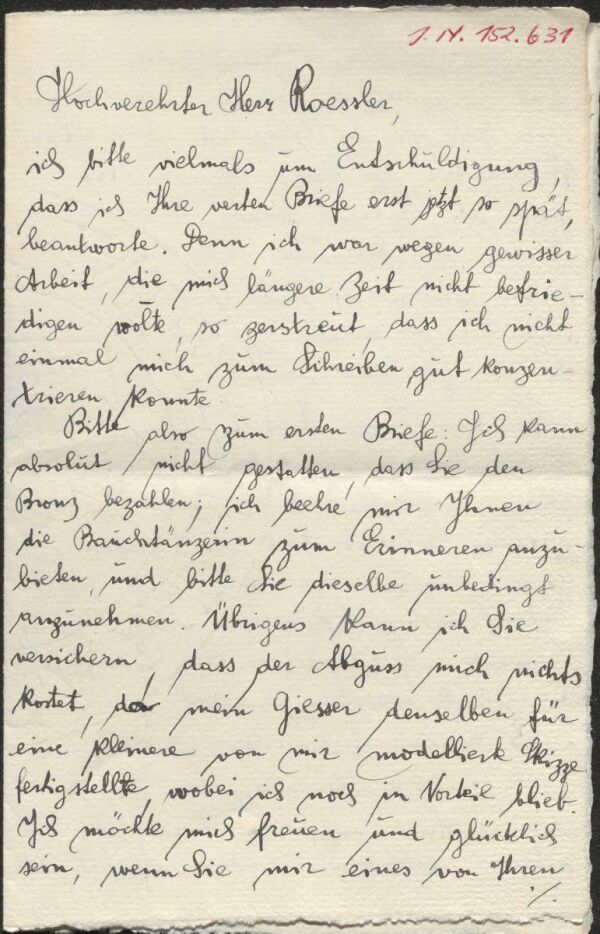 J. N. 152.631
Hochverehrter Herr Roessler,
ich bitte vielmals um Entschuldigung,
dass ich Ihre verten Briefe erst jetzt so spät,
beantworte. Denn ich war wegen gewisser
Arbeit, die mich längere Zeit nicht befrie-
digen wolte, so zerstreut, dass ich nicht
einmal mich zum Schreiben gut konzen-
trieren konnte.
Bitte also zum ersten Briefe: Ich kann
absolut nicht gestatten, dass Sie den
Bronz bezahlen; ich beehre mir Ihnen
die Bauchtänzerin zum Erinneren anzu-
bieten, und bitte Sie dieselbe unbedingt
anzunehmen. Übrigens kann ich Sie
versichern, dass der Abguss mich nichts
kostet, da mein Giesser denselben für
eine kleinere von mir modellierte Skizze
fertigstellte, wobei ich noch in Vorteil blieb.
Ich möchte mich freuen und glücklich
sein, wenn Sie mir eines von Ihren
./.